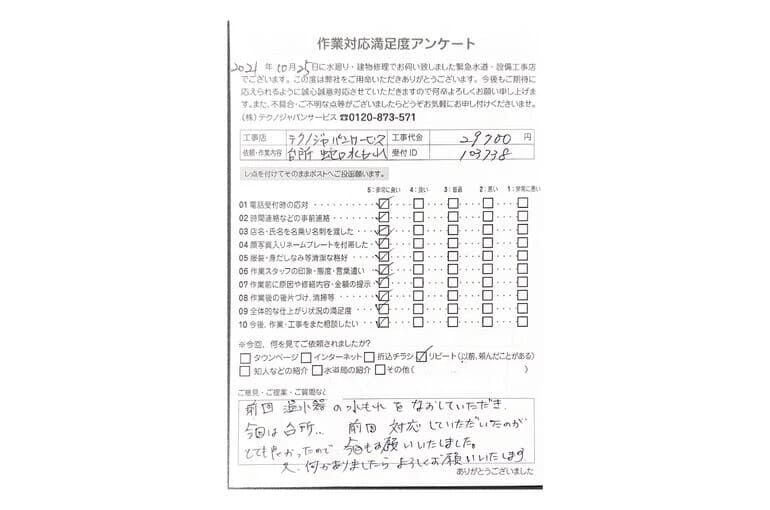 作業対応満足度アンケート
2021年10月25日に水廻り・建物修理でお伺い致しました緊急水道・設備工事店
でございます。この度は弊社をご用命いただきありがとうございます。今後もご期待に
応えられるように誠心誠意対応させていただきますので何卒よろしくお願い申し上げま
す。また、不具合・ご不明な点等がございましたらどうぞお気軽にお申し付けくださいませ。
(株)テクノジャパンサービス ☎0120-873-571
工事店 テクノジャパンサービス 工事代金 29700 円
依頼・作業内容 台所 蛇口水もれ 受付ID 103738
レ点を付けてそのままポストへご投函願います。
5:非常に良い 4:良い 3:普通 2:悪い 1:非常に悪い
01 電話受付時の応対
02 時間連絡などの事前連絡
03 店名・氏名を名乗り名刺を渡した
04 顔写真入りネームプレートを付帯した
05 服装・身だしなみ等清潔な格好
06 作業スタッフの印象・態度・言葉遣い
07 作業前に原因や修繕内容・金額の提示
08 作業後の後片づけ、清掃等
09 全体的な仕上がり状況の満足度
10 今後、作業・工事をまた相談したい
※今回、何を見てご依頼されましたか?
□タウンページ □インターネット □折込チラシ ☑リピート(以前、頼んだことがある)
□知人などの紹介 □水道局の紹介 □その他( )
ご意見・ご提案・ご質問など
前回 温水器の水もれをなおしていただき、
今回は台所… 前回対応していただいたのが
とても良かったので今回もお願いいたしました。
又、何かありましたらよろしくお願いいたします
ありがとうございました